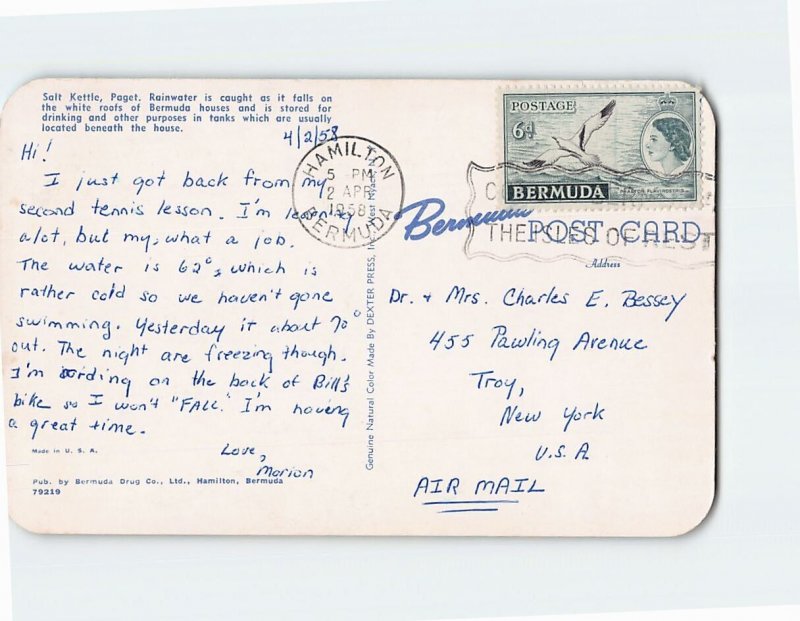 Salt Kettle, Paget. Rainwater is caught as it falls on
the white roofs of Bermuda houses and is stored for
drinking and other purposes in tanks which are usually
located beneath the house.
4/2/58
Hi!
I just got back from my
second tennis lesson. I'm
alot, but my, what a job.
The water is 62°, which is
rather cold so we haven't gone
swimming. Yesterday it about 70°
out. The night are freezing though.
I'm on the back of Bill's
bike so I won't "FALL." I'm having
a great time.
Love,
Marion
Made in U. S. A.
Pub. by Bermuda Drug Co., Ltd., Hamilton, Bermuda
79219
Genuine Natural Color Made By DEXTER PRESS, Nyack
HAMILTON
5 PM
2 APR
1958
BERMUDA
POSTAGE
6d
BERMUDA
THE ISLES OF REST
Bermuda
POST CARD
Address
Dr. + Mrs. Charles E. Bessey
455 Pawling Avenue
Troy,
New York
U.S.A
AIR MAIL